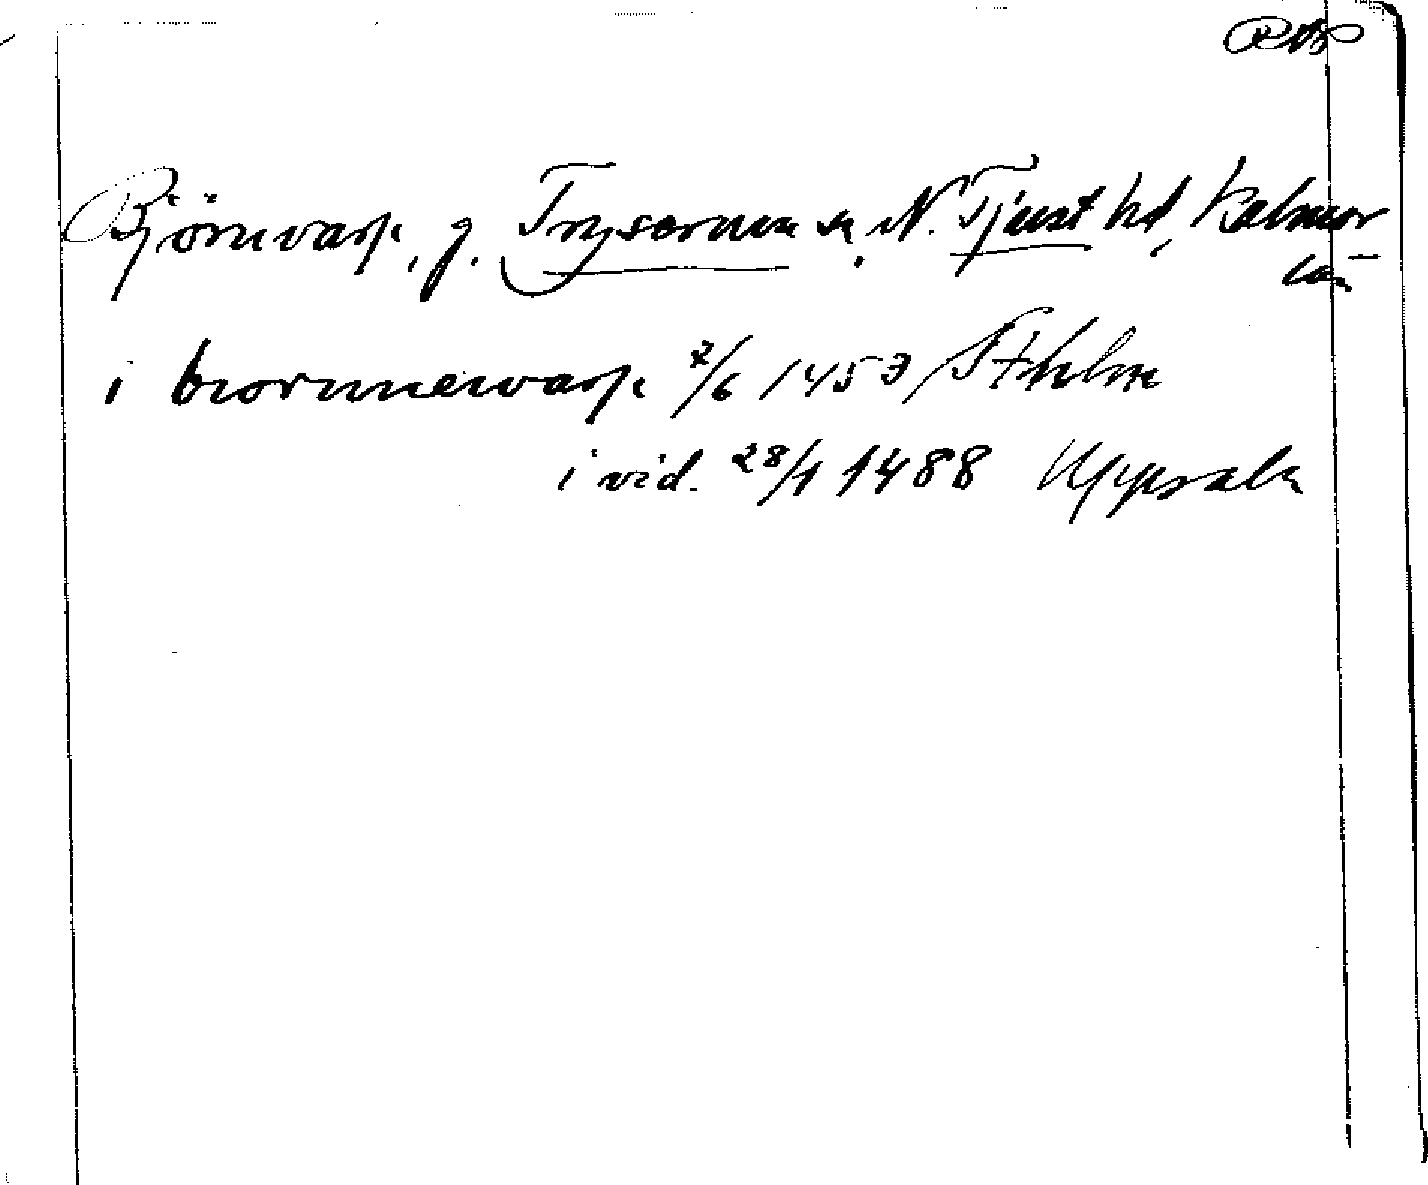 RAP
Björnvarp, g. Tryserum sn, N. Tjust hd, Kalmar
län
i biornnewarp 7/6 1453 Sthlm
i vid. 28/1 1488 Uppsala